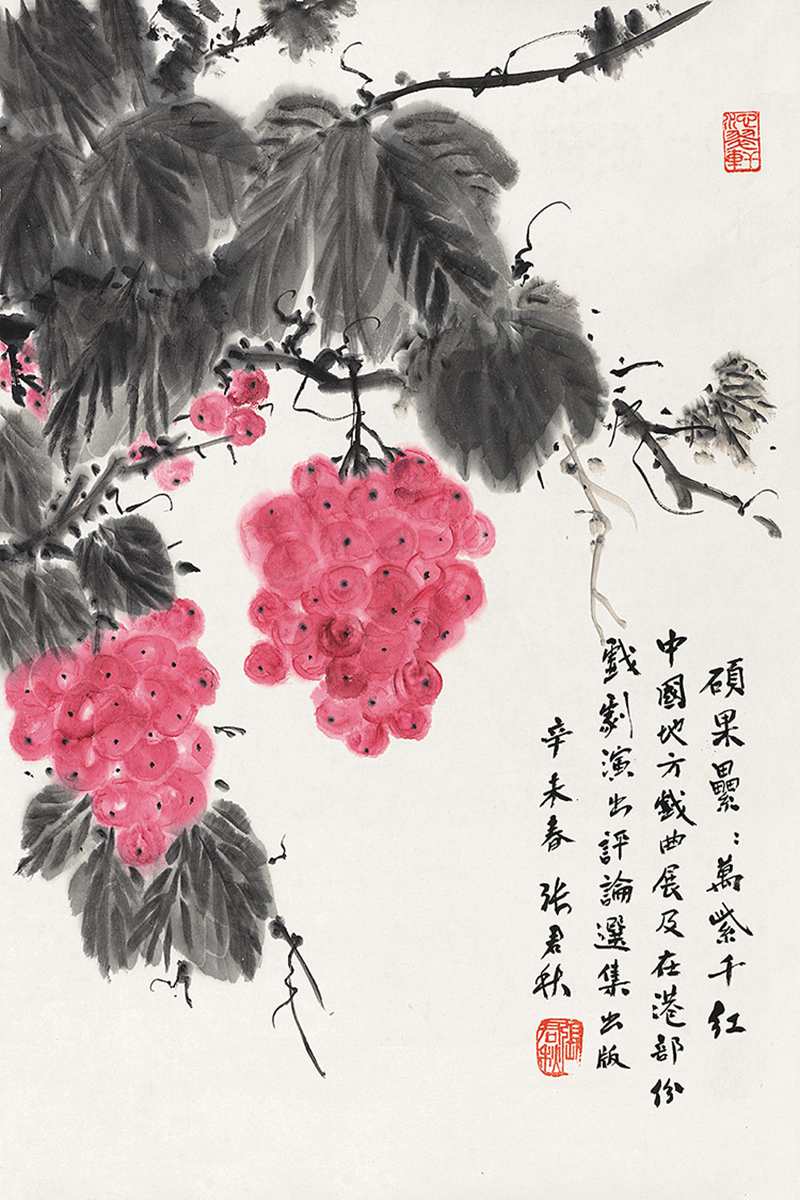 碩果纍：萬紫千紅
中國地方戲曲展及在港部份
戲劇演出評論選集出版
辛未春 張君秋
張君秋